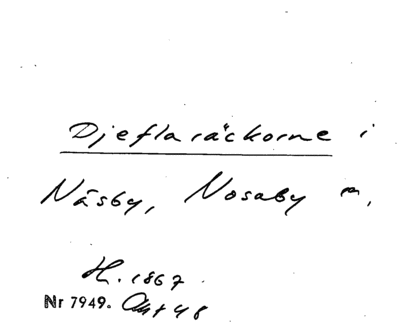 Djeflaräckorne i
Näsby, Nosaby
H. 1867.
Nr 7949. 48